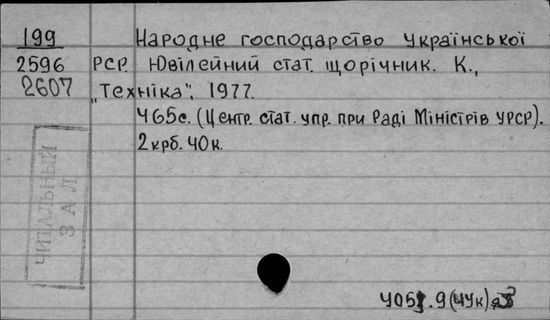 199 Народне господарство Української
2596 РСР. Ювілейний стат. щорічник. К.,
2607 "Техніка", 1977.
465с. (Центр. стат. упр. при Раді Міністрів УРСР).
2крб. 40к.
ЧИТАЛЬНЫЙ
ЗАЛ
9(44к)